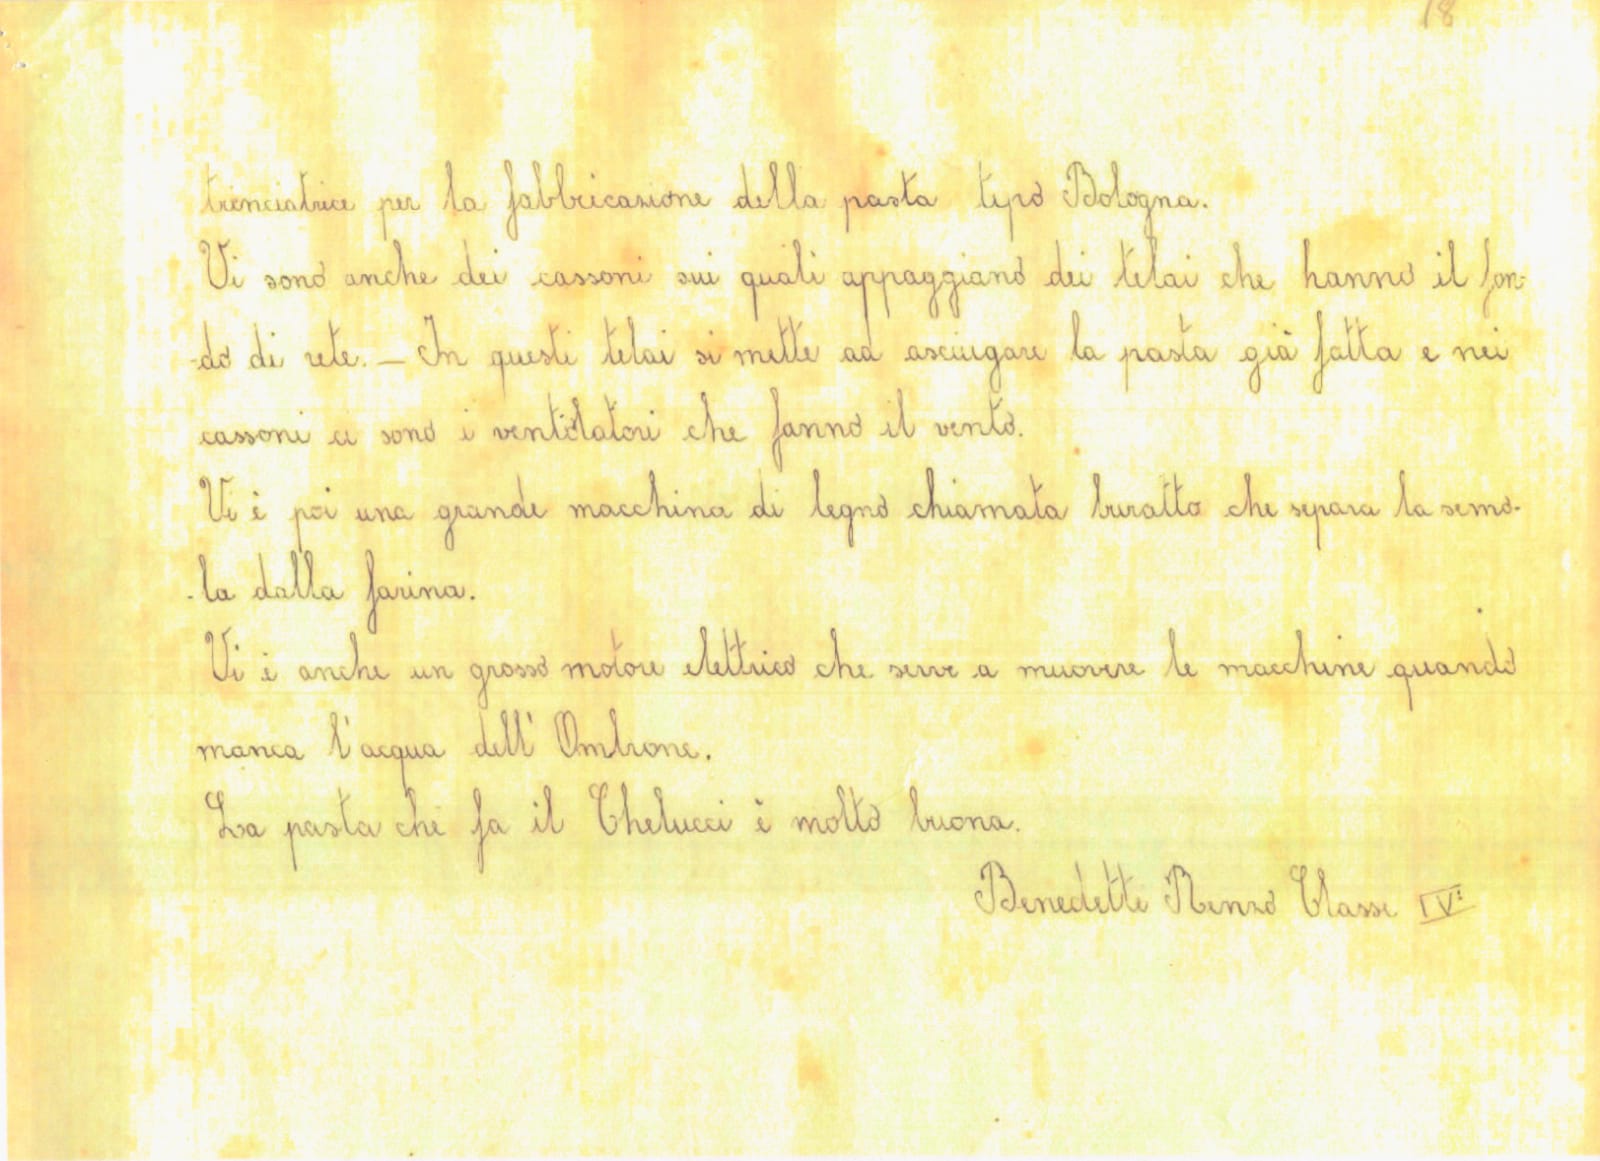 18
trinciatrice per la fabbricazione della pasta tipo Bologna.
Vi sono anche dei cassoni sui quali appaggiano dei telai che hanno il fon-
-do di rete. _ In questi telai si mette ad asciugare la pasta già fatta e nei
cassoni ci sono i ventilatori che fanno il vento.
Vi è poi una grande macchina di legno chiamata buratto che separa la semo-
-la dalla farina.
Vi è anche un grosso motore elettrico che serve a muovere le macchine quando
manca l'acqua dell'Ombrone.
La pasta che fa il Chelucci è molto buona.
Benedetti Renzo Classe IVª